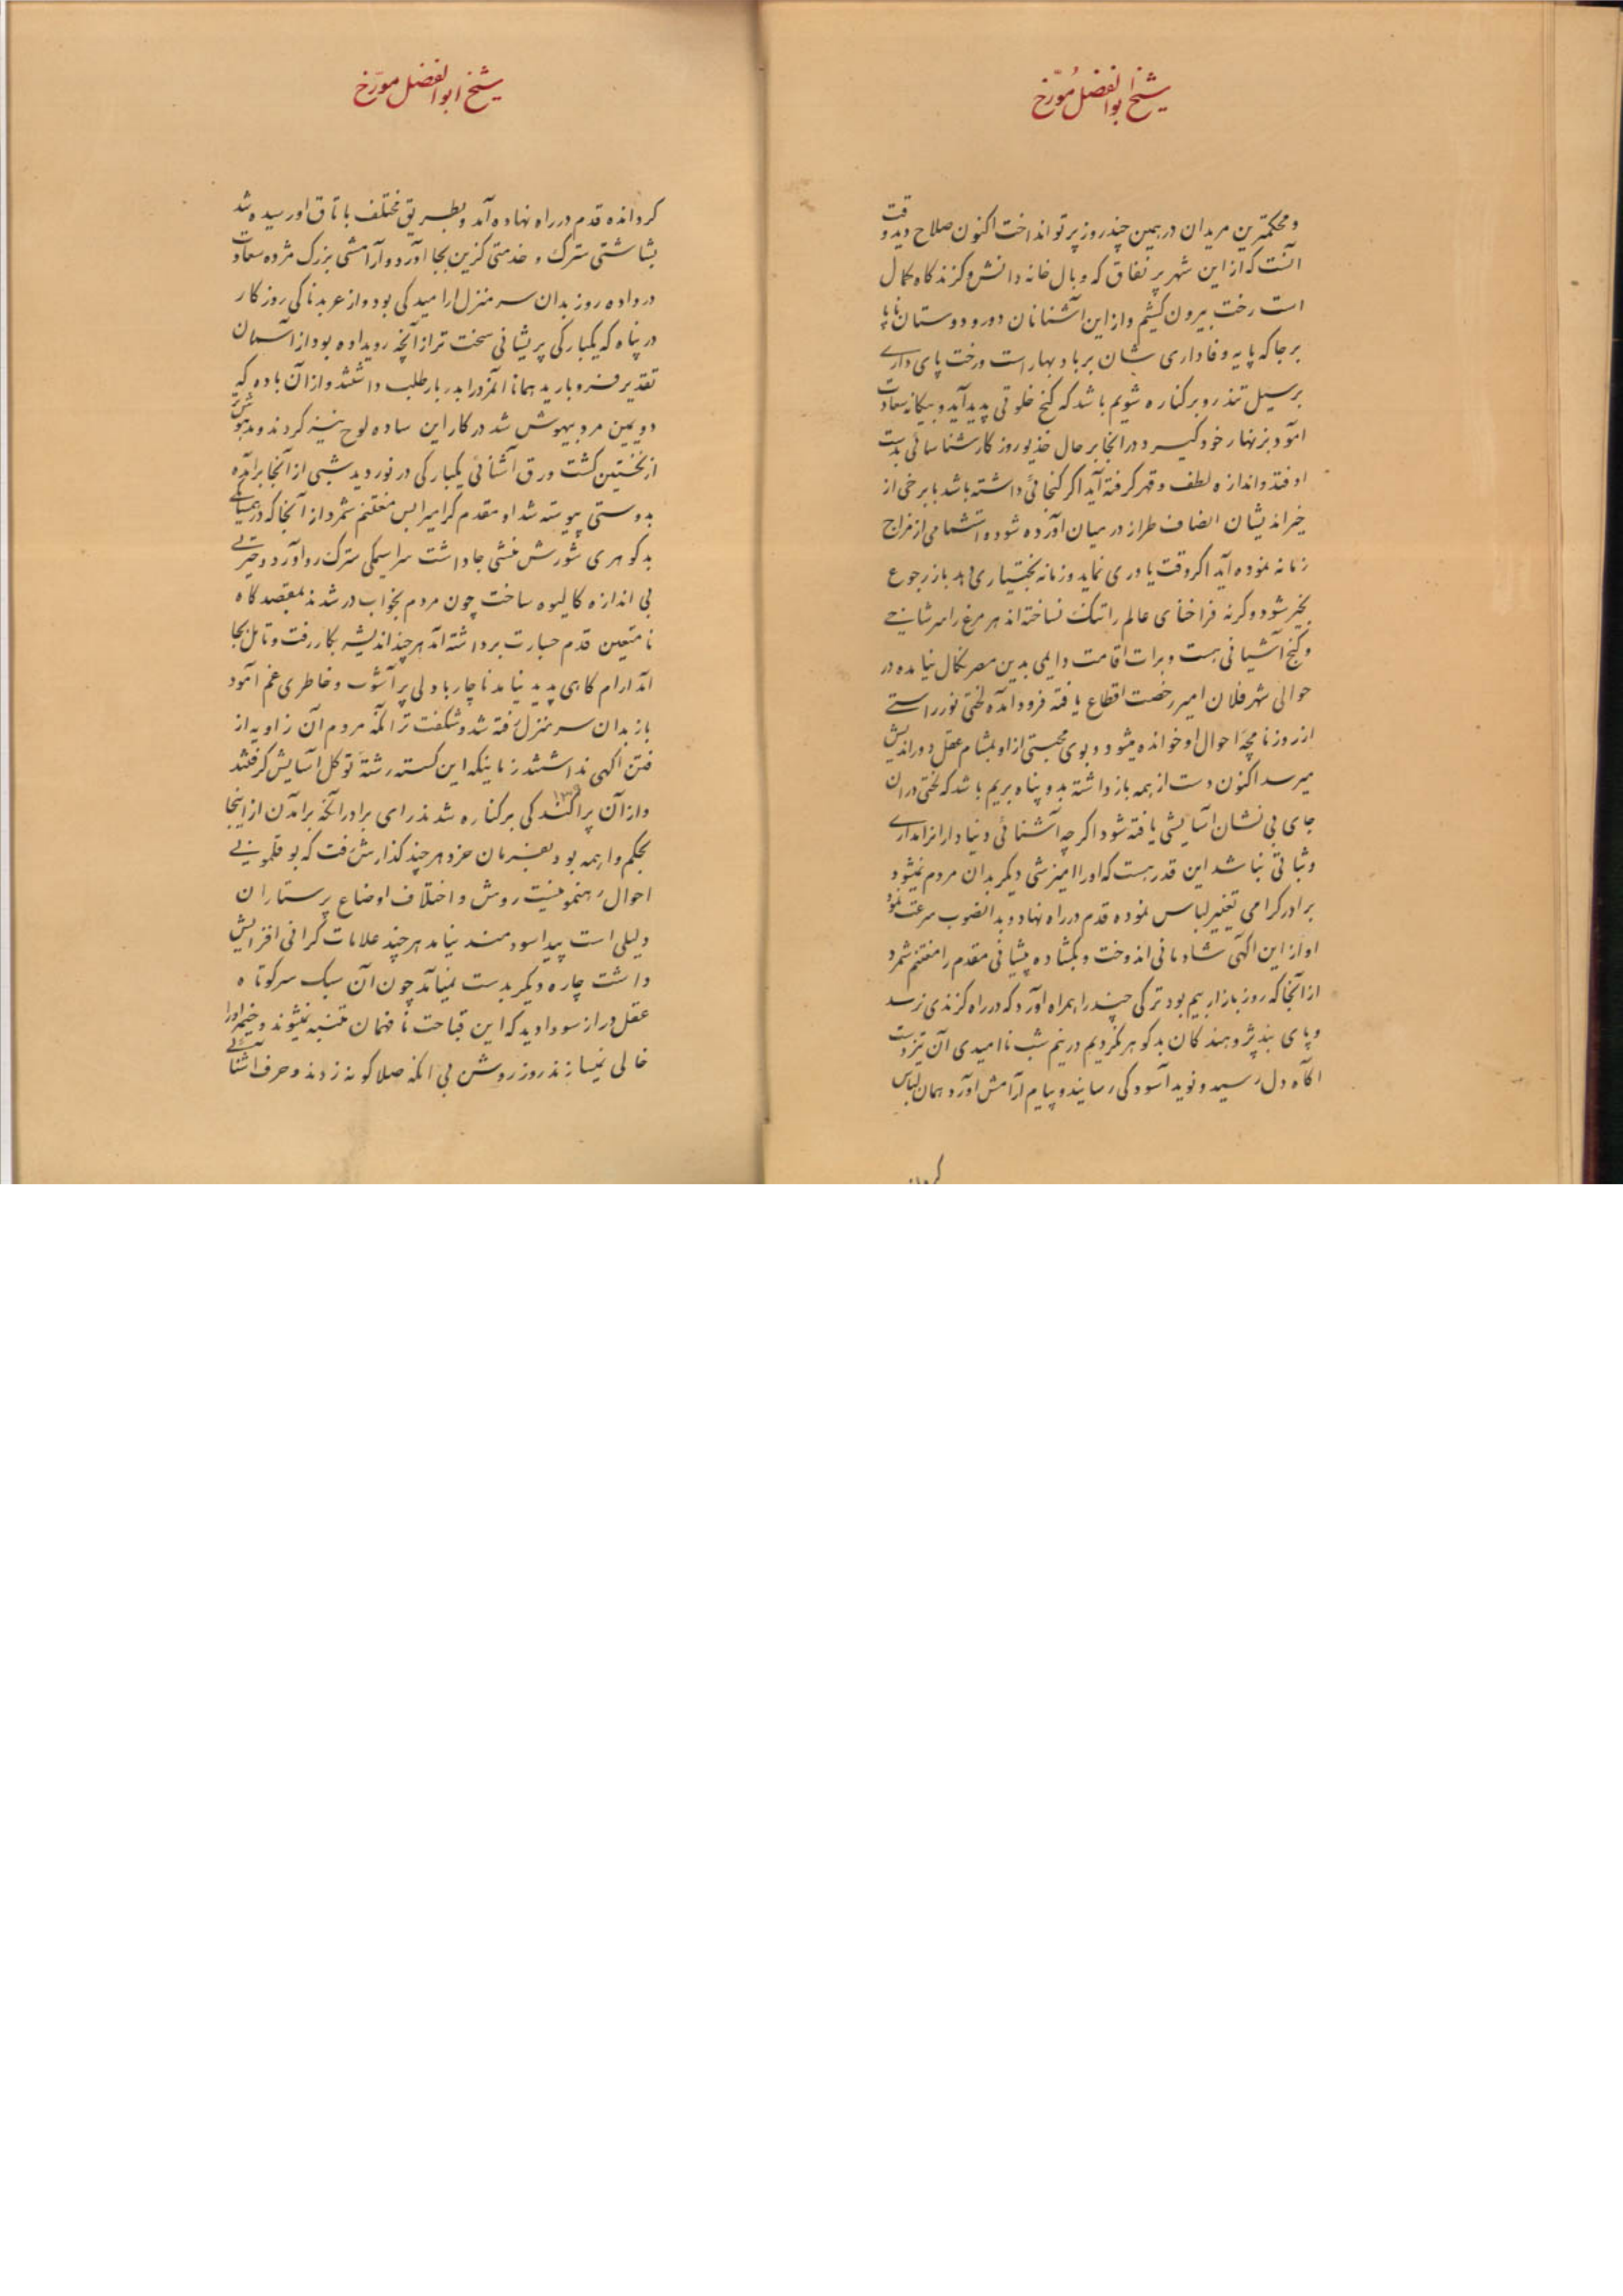 شیخ ابوالفضل مورّخ
و محکمترین مریدان در همین چند روز پرتو انداخت اکنون صلاح دید وقت
آنست که از این شهر پر نفاق که وبال خانه دانش و گزندگاه کمال
است رخت بیرون کشیم و از این آشنانان دور و دوستان ناپا
برجا که پایه وفاداری شان بر باد بهار است و رخت پای داری
بر سیل تندرو برکناره شویم باشد که کنج خلوتی پدید آید و بیکانه سعادت
آمود بزنهار خود گیرد در آنجا بر حال خدیو روزکار شناسائی بدست
اوفتد و اندازه لطف و قهر کرفته آید اکر کنجائی داشته باشد با برخی از
خیر اندیشان انصاف طراز در میان آورده شود و استشمامی از مزاج
زمانه نموده آید اکر وقت یاوری نماید و زمانه بختیاری دهد باز رجوع
بخیر شود و کرنه فراخنای عالم را تنک نساخته اند هر مرغ را سر شاخی
و کنج آشیانی هست و برات اقامت دایمی بدین مصر نکال نیامده در
حوالی شهر فلان امیر رخصت اقطاع یافته فرود آمده لختی نور راستی
از روزنامچهٔ احوال او خوانده میشود و بوی محبتی از او بمشام عقل دور اندیش
میرسد اکنون دست از همه باز داشته بدو پناه بریم باشد که لختی در ان
جای بی نشان آسایشی یافته شود اکر چه آشنائی دنیا دار انرا مداری
و ثباتی نباشد این قدر هست که او را امیزشی دیکر بدان مردم نمیشود
برادر کرامی تغییر لباس نموده قدم در راه نهاد و بدانصوب سرعت نمود
او از این اکهی شادمانی اندوخت و بکشاده پیشانی مقدم را مغتنم شمرد
از انجا که روز بازار بیم بود ترکی چند را همراه اورد که در راه کزندی نرسد
و پای بند پژوهندکان بدکوهر نکردیم در نیم شب ناامیدی آن تیزدست
اکاه دل رسید و نوید آسودکی رسانید و پیام آرامش آورد همان لباس
شیخ ابوالفضل مورّخ
کردانده قدم در راه نهاده آمد و بطریق مختلف باتاق او رسیده شد
بشاشتی سترک و خدمتی کزین بجا آورد و آرامشی بزرک مژده سعادت
در داد ده روز بدان سر منزل ارامیدکی بود و از عربدناکی روزکار
در پناه که یکبارکی پریشانی سخت تر از آنچه رویداده بود از آسمان
تقدیر فرو بارید همانا آنمرد را بدربار طلب داشتند و از آن باده که
دویمین مرد بیهوش شد در کار این ساده لوح نیز کردند و مدهوش تر
از نخستین کشت ورق آشنائی یکبارکی در نوردید شبی از آنجا برآمده
بدوستی پیوسته شد او مقدم کرامیرا بس مغتنم شمرد از آنجا که در همسایکی
بدکوهری شورش منشی جا داشت سراسیمکی سترک رو آورد و حیرتی
بی اندازه کالیوه ساخت چون مردم بخواب در شدند بمقصدکاه
نامتعین قدم جسارت برداشته آمد هر چند اندیشه بکار رفت و تامل بجا
آمد ارام کاهی پدید نیامد ناچار با دلی پر آشوب و خاطری غم آمود
باز بدان سر منزل رفته شد و شکفت تر انکه مردم آن زاویه از
فتن اکهی نداشتند زمانیکه این کسسته رشتهٔ توکل آسایش کرفتند
و از آن پراکندکی برکناره شدند رای برادر آنکه برآمدن از اینجا
بحکم واهمه بود نفرمان خرد هر چند کذارش رفت که بوقلمونی
احوال رهنمونیست روش و اختلاف اوضاع پرستاران
دلیلی است پیدا سودمند نیامد هر چند علامات کرانی افزایش
داشت چاره دیکر بدست نمیآمد چون آن سبک سر کوتاه
عقل دراز سودا دید که این قباحت نافهمان متنبه نمیشوند و خیمه او را
خالی نمیسازند روز روشن بی آنکه صلاکونه زدند و حرف آشنائی